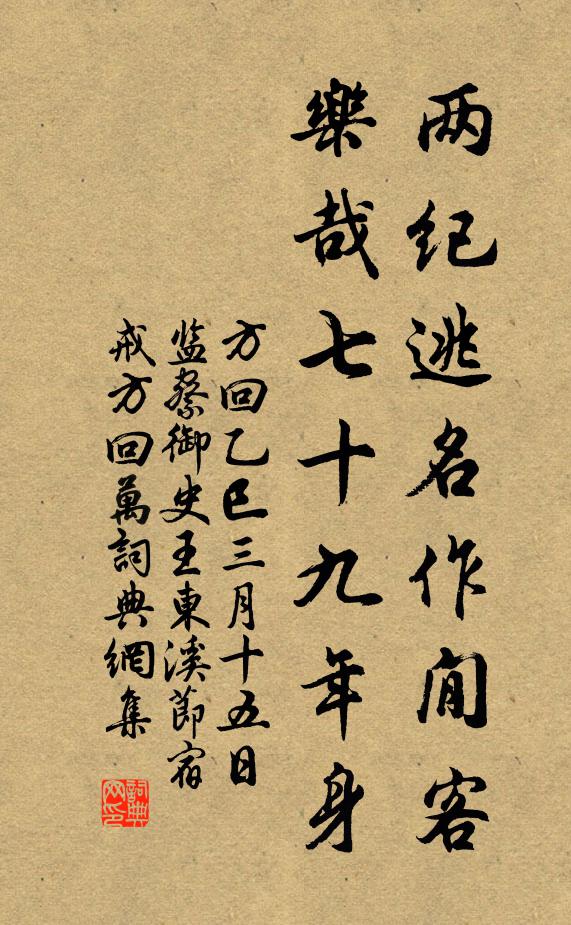 两纪逃名作閒客
樂哉七十九年身
方回乙巳三月十五日
监察御史王東溪節宿
戒方回萬詞典網集
詞典
网印